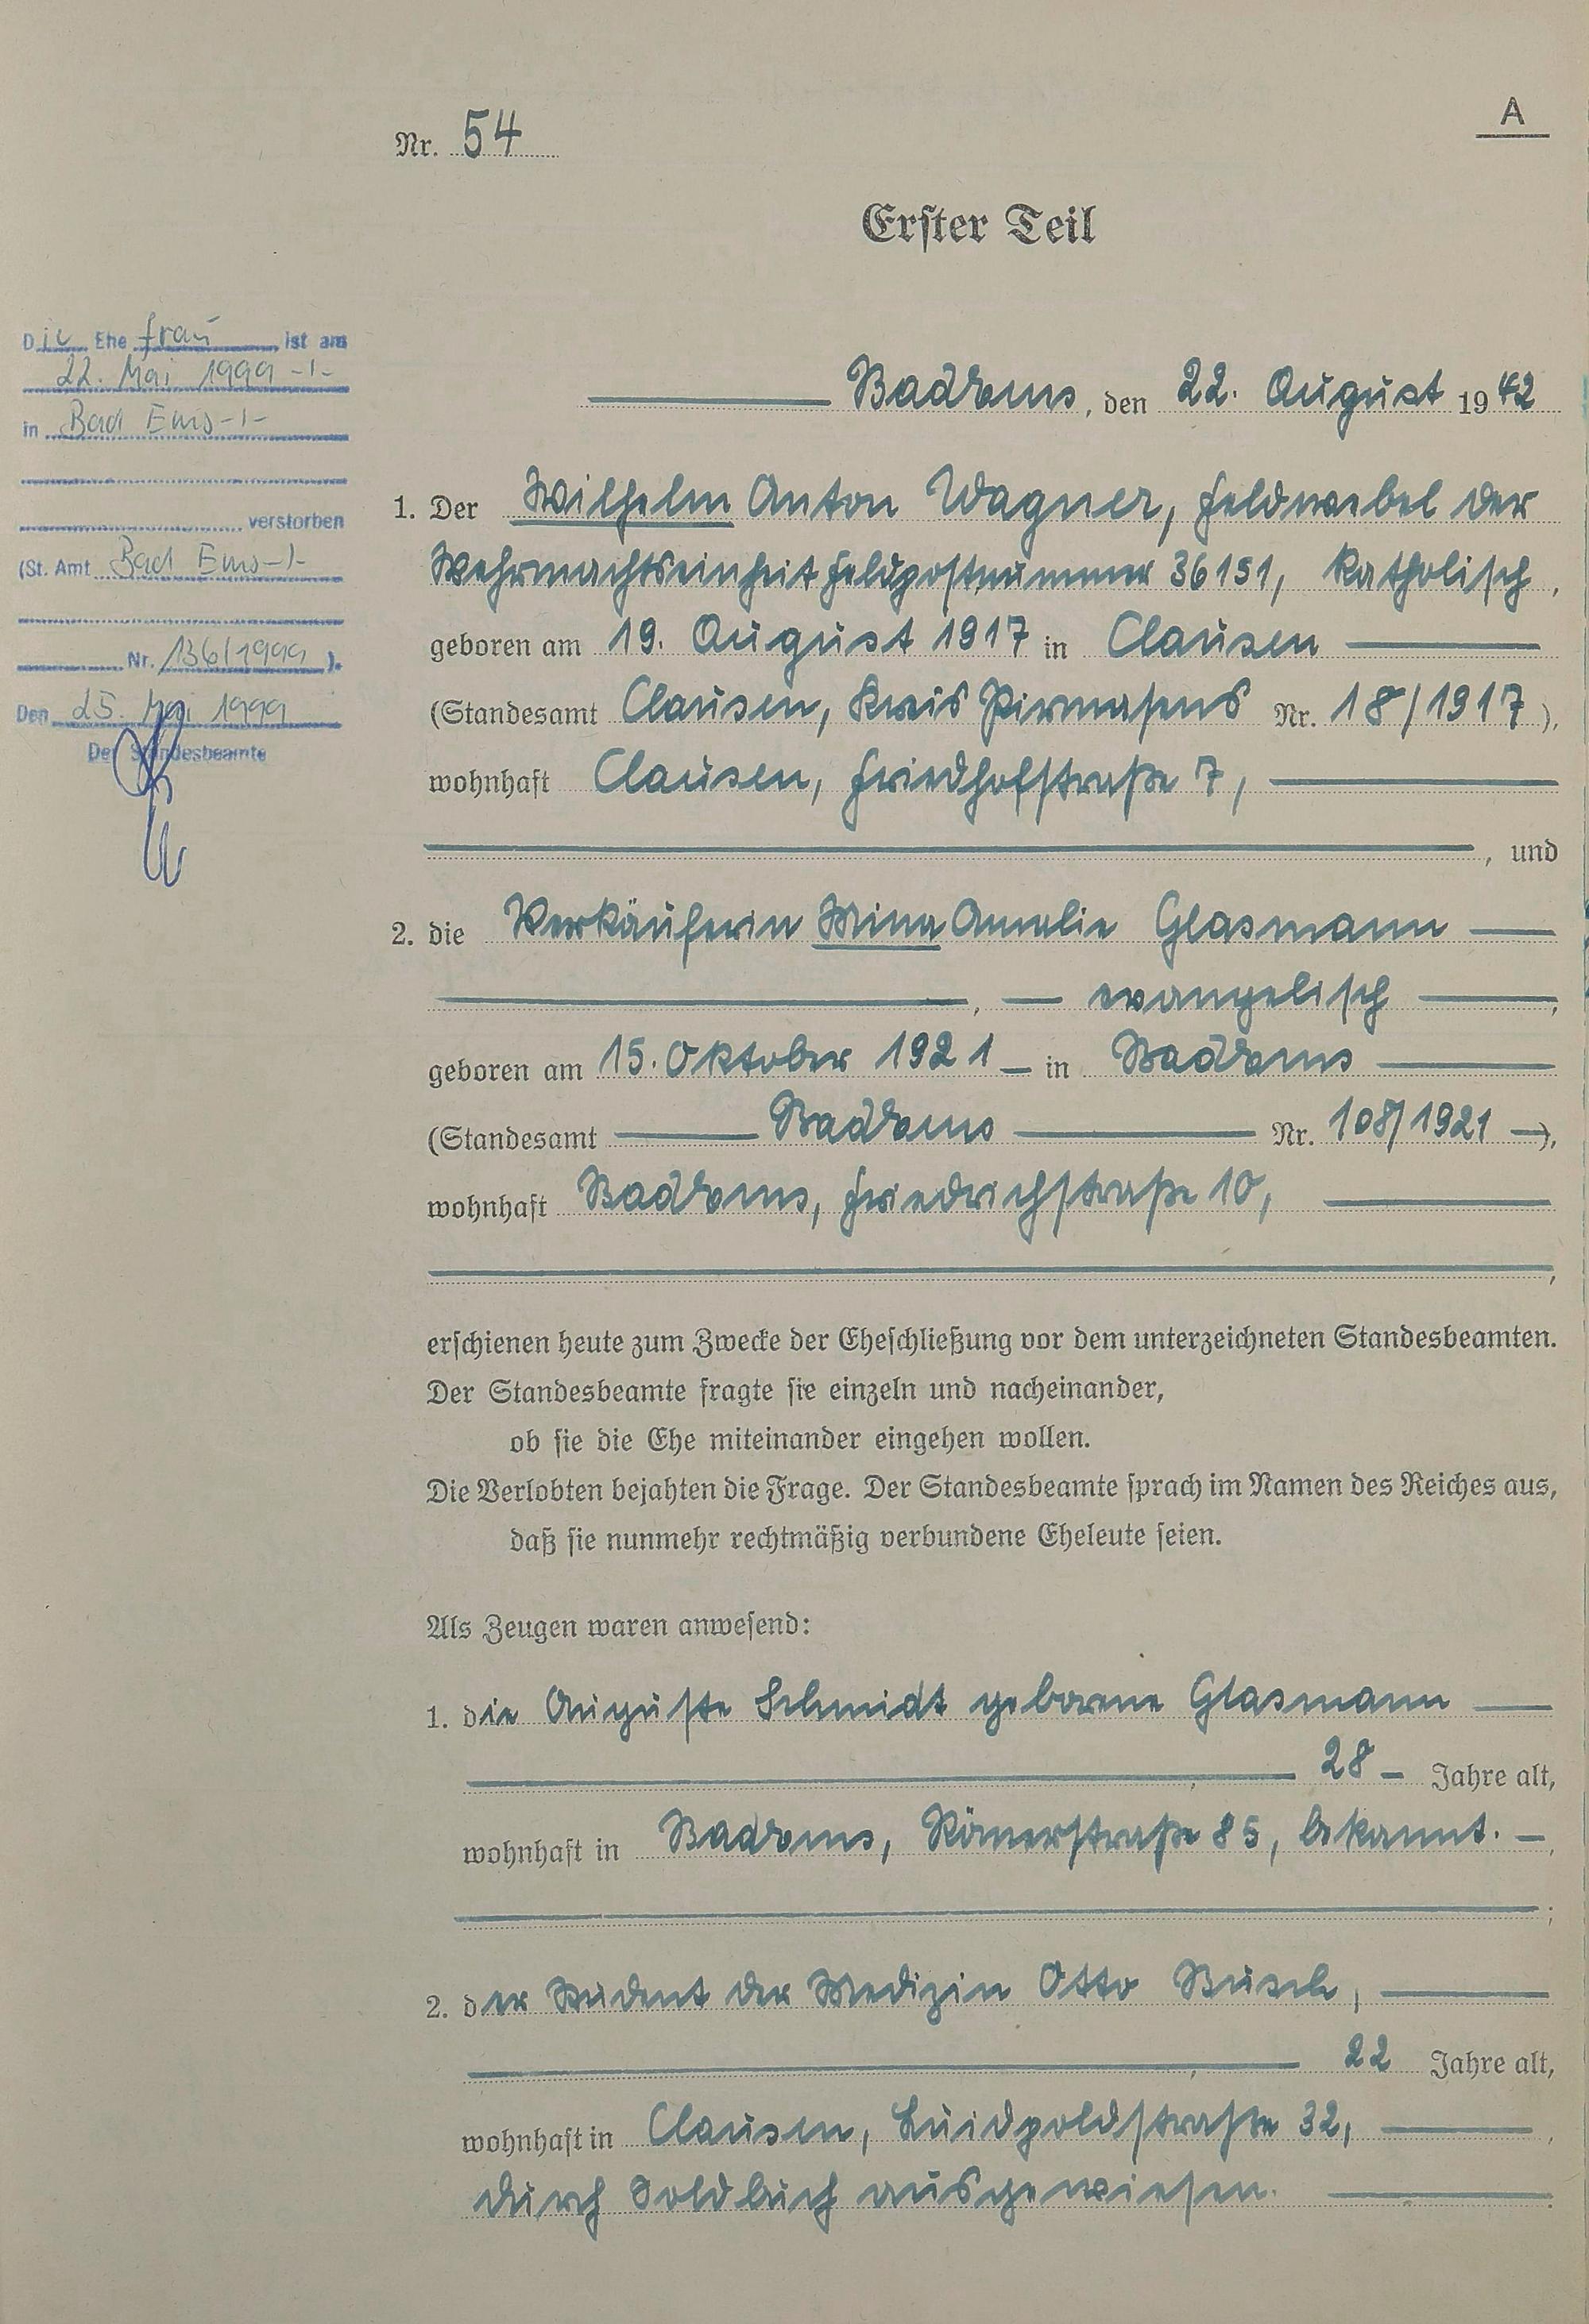 A
Nr. 54
Erster Teil
Die Ehefrau ist am
22. Mai 1999 -/-
in Bad Ems -/-
verstorben
(St. Amt Bad Ems -/-
Nr. 136/1999 ).
Den 25. Mai 1999
Der Standesbeamte
Bad Ems, den 22. August 1942
1. Der Wilhelm Anton Wagner, Feldwebel der
Wehrmachtseinheit Feldpostnummer 36151, katholisch,
geboren am 19. August 1917 in Clausen
(Standesamt Clausen, Kreis Pirmasens Nr. 18/1917),
wohnhaft Clausen, Friedhofstraße 7,
, und
2. die Verkäuferin Mina Amalie Glasmann
, evangelisch ,
geboren am 15. Oktober 1921 in Bad Ems
(Standesamt Bad Ems Nr. 108/1921 ),
wohnhaft Bad Ems, Friedrichstraße 10,
,
erschienen heute zum Zwecke der Eheschließung vor dem unterzeichneten Standesbeamten.
Der Standesbeamte fragte sie einzeln und nacheinander,
ob sie die Ehe miteinander eingehen wollen.
Die Verlobten bejahten die Frage. Der Standesbeamte sprach im Namen des Reiches aus,
daß sie nunmehr rechtmäßig verbundene Eheleute seien.
Als Zeugen waren anwesend:
1. die Auguste Schmidt geborene Glasmann
, 28 Jahre alt,
wohnhaft in Bad Ems, Römerstraße 85, bekannt. ,
;
2. der Student der Medizin Otto Busch,
, 22 Jahre alt,
wohnhaft in Clausen, Luidpoldstraße 32, ,
durch Soldbuch ausgewiesen. .